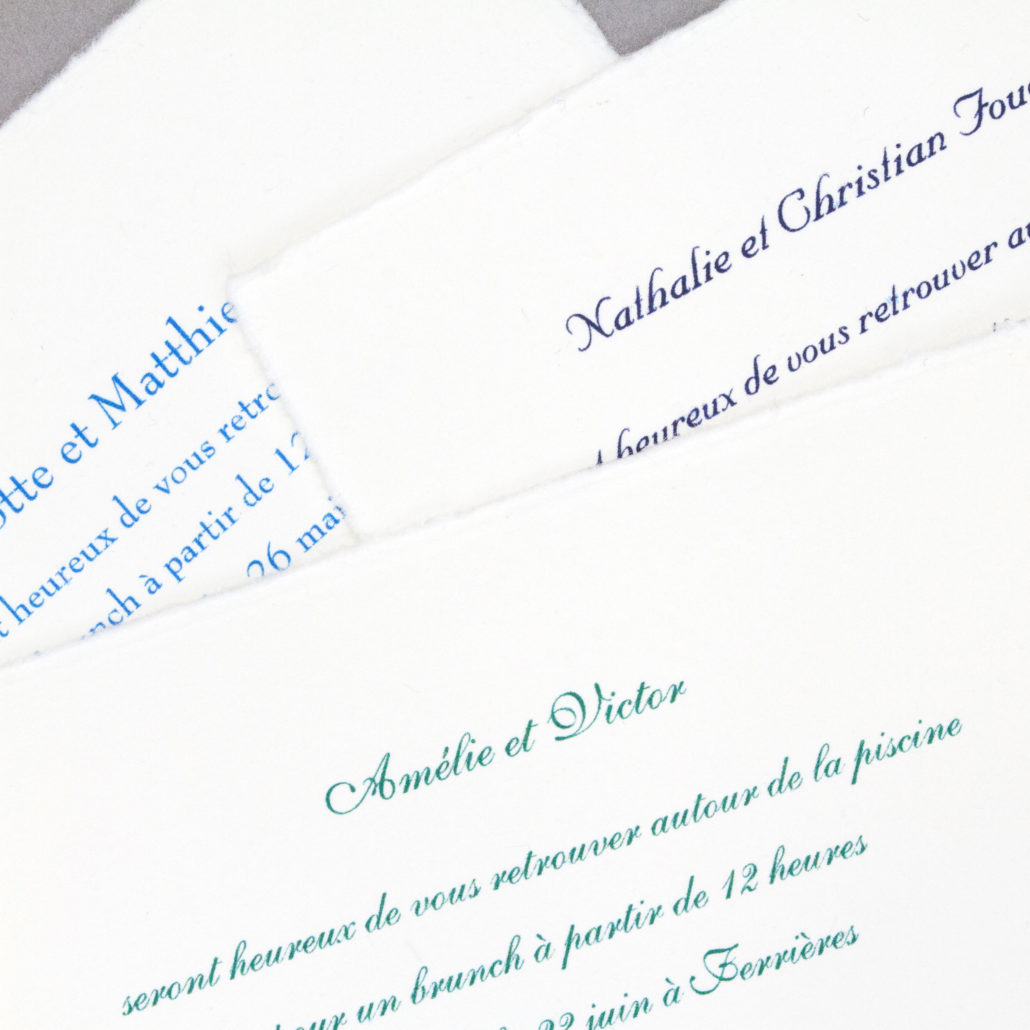 et Matthie
heureux de vous retro
à partir de 12
26 mai
Nathalie et Christian Fou
heureux de vous retrouver au
Amélie et Victor
seront heureux de vous retrouver autour de la piscine
un brunch à partir de 12 heures
22 juin à Ferrières